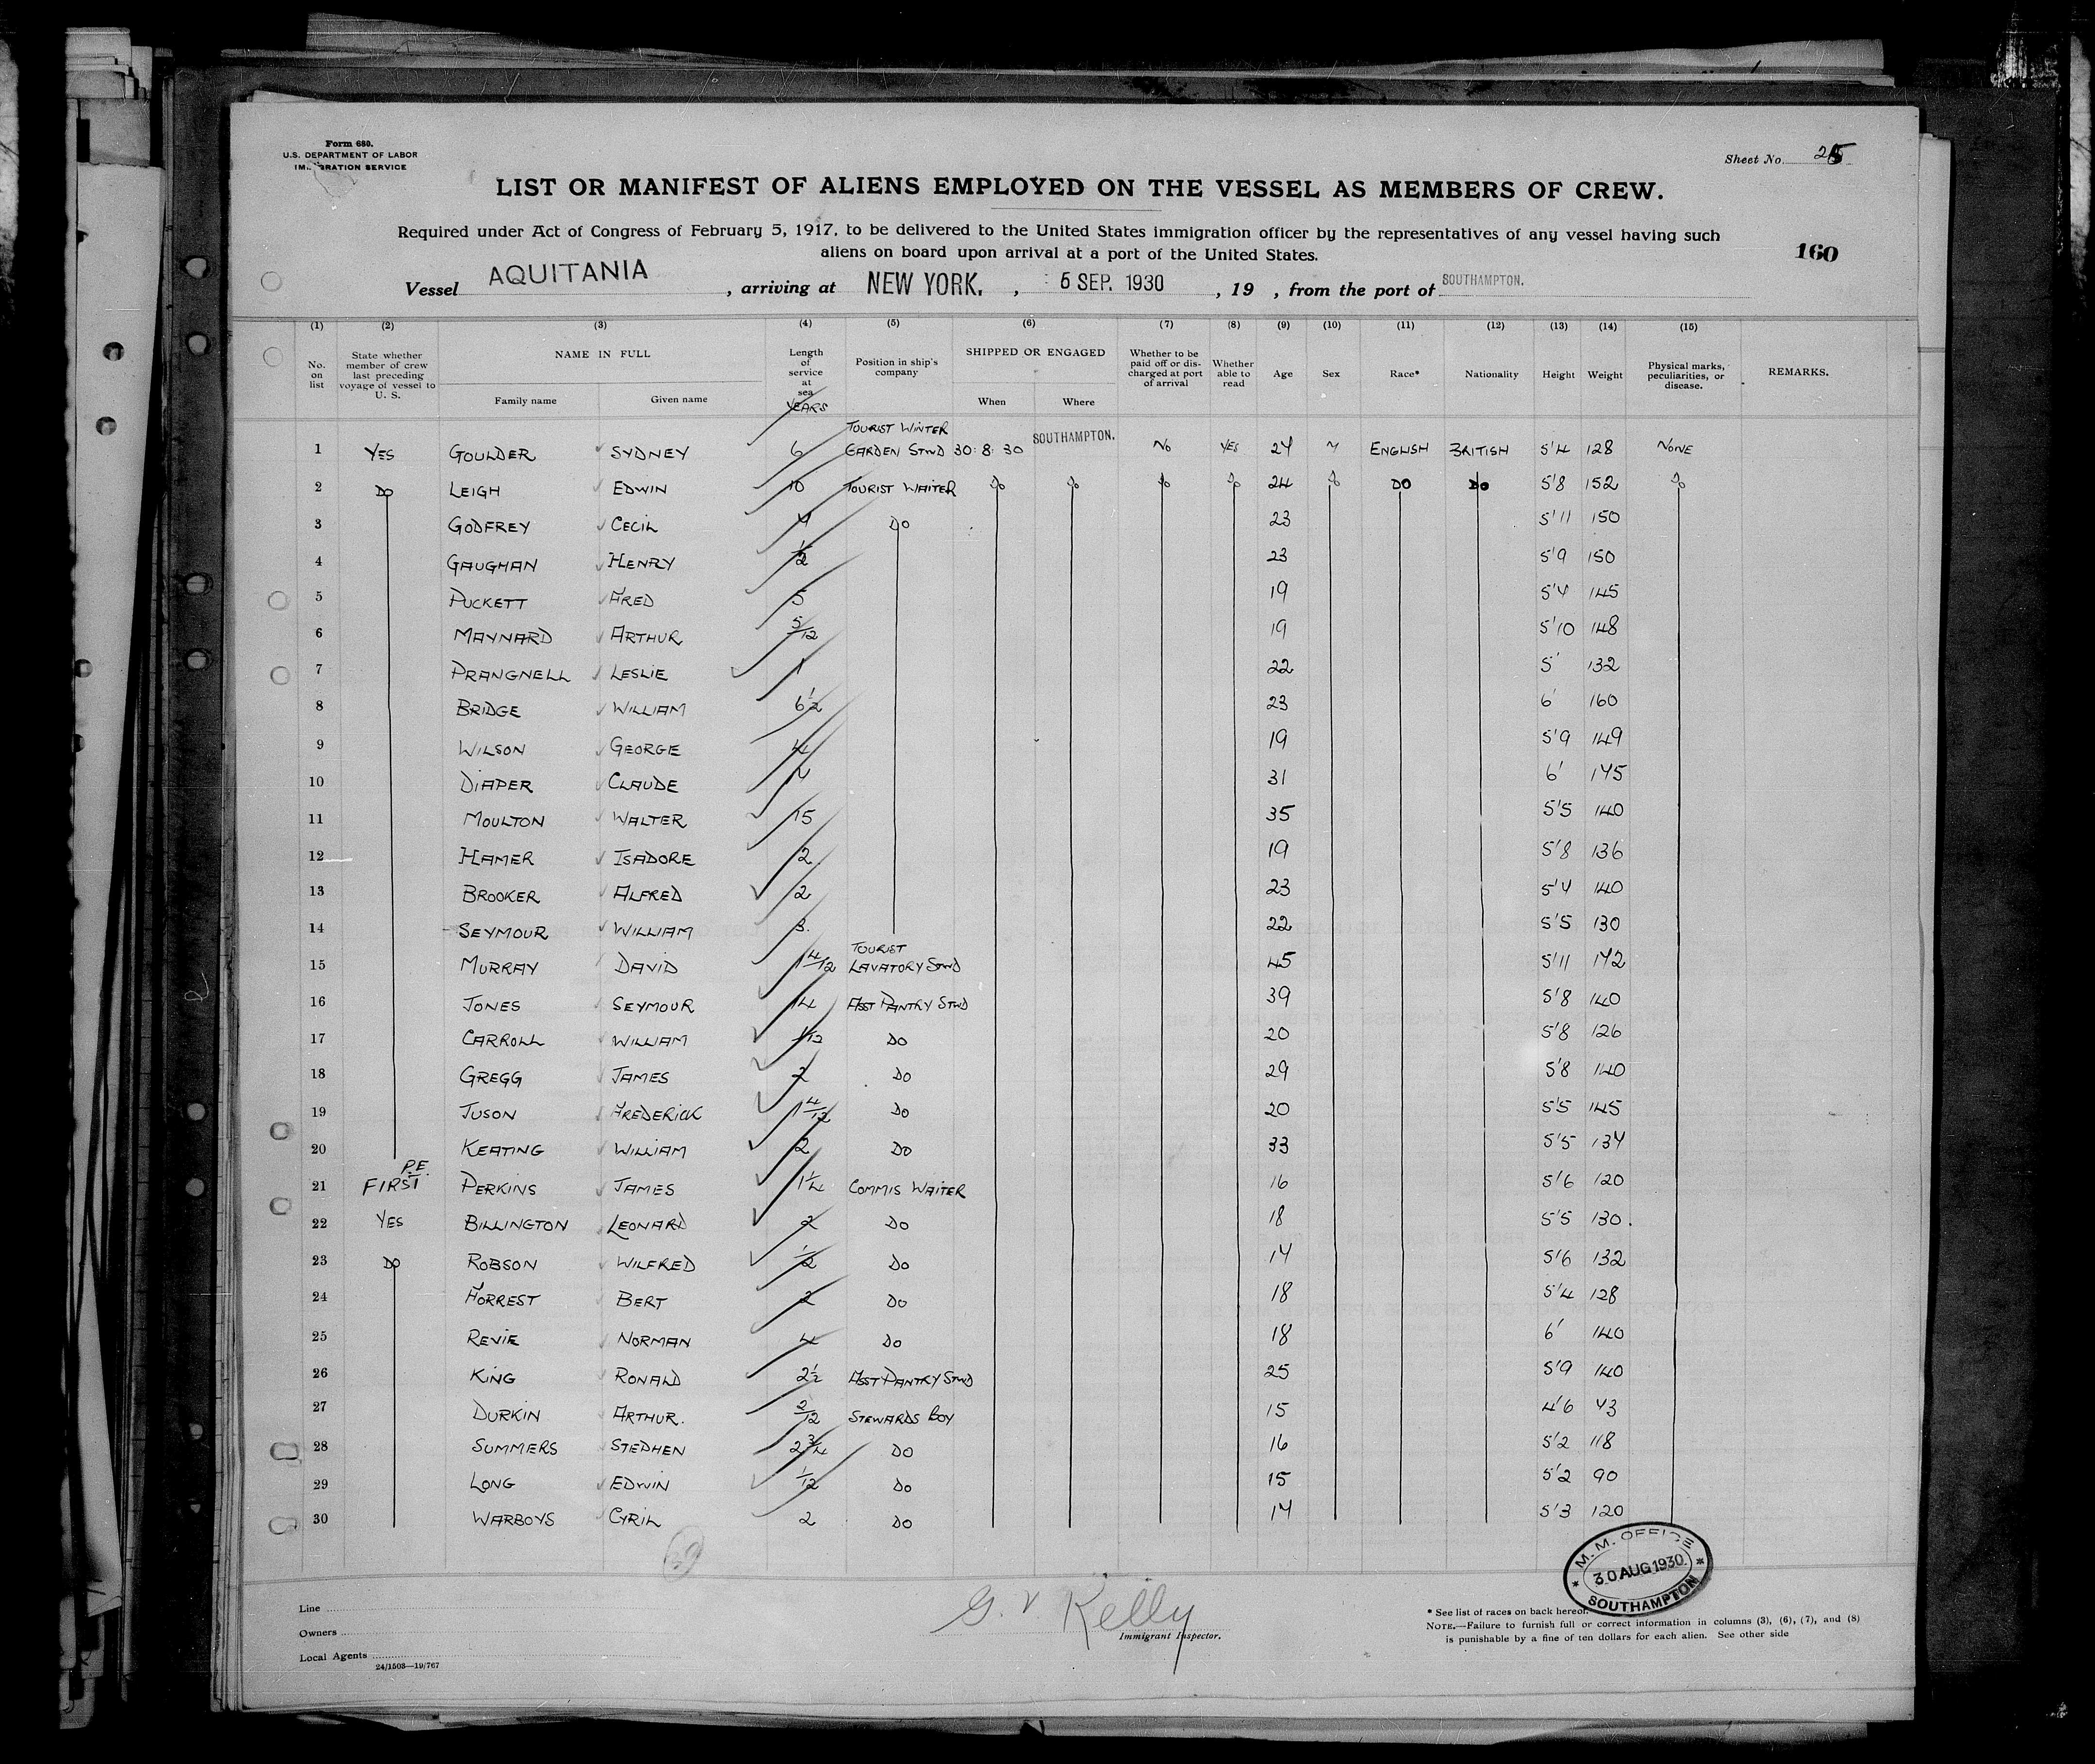 Form 680.
U.S. DEPARTMENT OF LABOR
IMMIGRATION SERVICE
Sheet No. 25
LIST OR MANIFEST OF ALIENS EMPLOYED ON THE VESSEL AS MEMBERS OF CREW.
Required under Act of Congress of February 5, 1917, to be delivered to the United States immigration officer by the representatives of any vessel having such
aliens on board upon arrival at a port of the United States.
160
Vessel AQUITANIA, arriving at NEW YORK, 5 SEP. 1930, 19 , from the port of SOUTHAMPTON.
(1) (2) (3) (4) (5) (6) (7) (8) (9) (10) (11) (12) (13) (14) (15)
No. on list State whether member of crew last preceding voyage of vessel to U. S. NAME IN FULL Family name Given name Length of service at sea YEARS Position in ship's company SHIPPED OR ENGAGED When Where Whether to be paid off or discharged at port of arrival Whether able to read Age Sex Race* Nationality Height Weight Physical marks, peculiarities, or disease. REMARKS.
TOURIST WINTER
1 YES GOULDER SYDNEY 6 GARDEN STWD 30·8·30 SOUTHAMPTON. NO YES 27 M ENGLISH BRITISH 5'4 128 NONE
2 DO LEIGH EDWIN 10 TOURIST WAITER DO DO DO DO 24 DO DO DO 5'8 152 DO
3 GODFREY CECIL 7 DO 23 5'11 150
4 GAUGHAN HENRY 1/2 23 5'9 150
5 PUCKETT FRED 5 19 5'7 145
6 MAYNARD ARTHUR 5/12 19 5'10 148
7 PRANGNELL LESLIE 1 22 5' 132
8 BRIDGE WILLIAM 6 1/2 23 6' 160
9 WILSON GEORGE 4 19 5'9 149
10 DIAPER CLAUDE 7 31 6' 175
11 MOULTON WALTER 15 35 5'5 140
12 HAMER ISADORE 2 19 5'8 136
13 BROOKER ALFRED 2 23 5'7 140
14 SEYMOUR WILLIAM 3 22 5'5 130
TOURIST
15 MURRAY DAVID 1 4/12 LAVATORY STWD 45 5'11 172
16 JONES SEYMOUR 14 ASST PANTRY STWD 39 5'8 140
17 CARROLL WILLIAM 1/12 DO 20 5'8 126
18 GREGG JAMES 2 DO 29 5'8 140
19 JUSON FREDERICK 1 4/12 DO 20 5'5 145
20 KEATING WILLIAM 2 DO 33 5'5 137
P.E.
21 FIRST PERKINS JAMES 1 1/4 COMMIS WAITER 16 5'6 120
22 YES BILLINGTON LEONARD 2 DO 18 5'5 130.
23 DO ROBSON WILFRED 1/2 DO 17 5'6 132
24 FORREST BERT 2 DO 18 5'4 128
25 REVIE NORMAN 4 DO 18 6' 140
26 KING RONALD 2 1/2 ASST PANTRY STWD 25 5'9 140
27 DURKIN ARTHUR. 2/12 STEWARDS BOY 15 4'6 73
28 SUMMERS STEPHEN 2 3/4 DO 16 5'2 118
29 LONG EDWIN 1/12 DO 15 5'2 90
30 WARBOYS CYRIL 2 DO 17 5'3 120
30
M. M. OFFICE
30 AUG 1930
SOUTHAMPTON
Line
Owners
Local Agents
24/1503—19/767
G. V. Kelly
Immigrant Inspector.
* See list of races on back hereof.
NOTE.—Failure to furnish full or correct information in columns (3), (6), (7), and (8)
is punishable by a fine of ten dollars for each alien. See other side